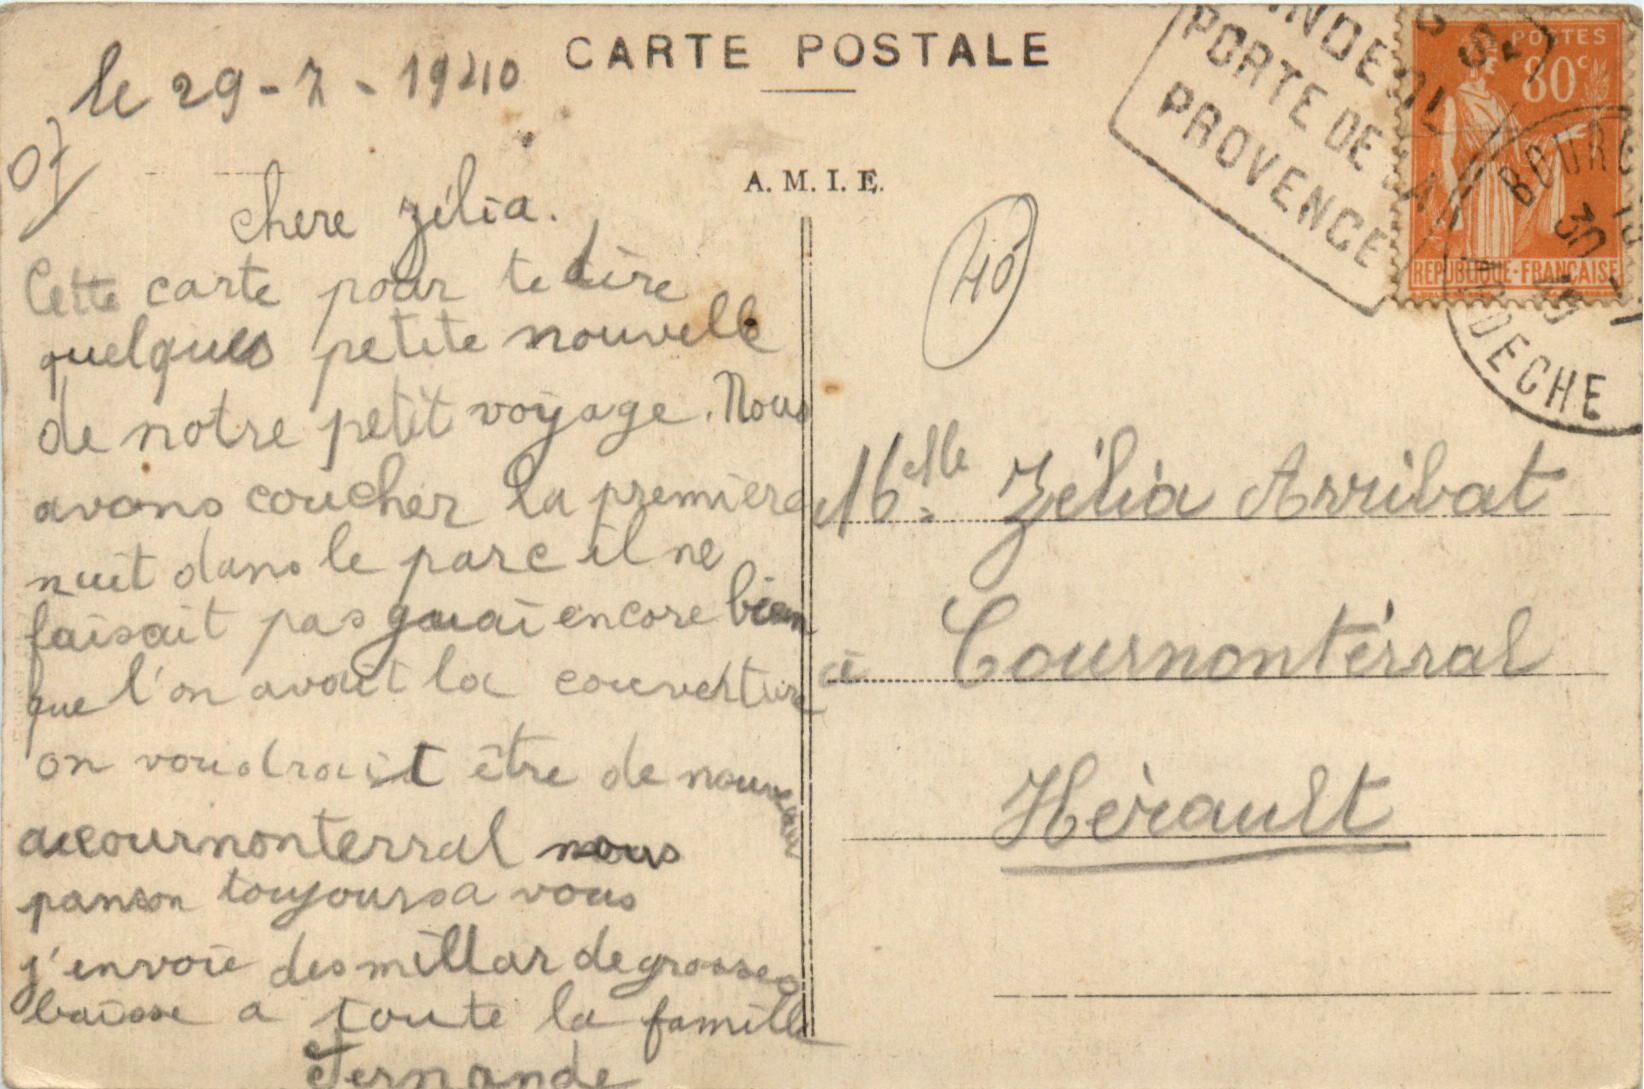 CARTE POSTALE
A. M. I. E.
le 29-7-1940
07
chere Zélia.
Cette carte pour te dire
quelques petite nouvelle
de notre petit voyage. Nous
avons coucher la première
nuit dans le parc il ne
faisait pas encore bien
que l'on avait la couverture
on voudrait être de nouveau
a cournonterral nous
panson toujours a vous
j'envoie des millar de grosses
baisse a toute la famille
Fernande
40
PORTE DE LA
PROVENCE
POSTES
80c
REPUBLIQUE-FRANÇAISE
BOURG
30
ARDECHE
Melle Zélia Arribat
à Cournontérral
Hérault